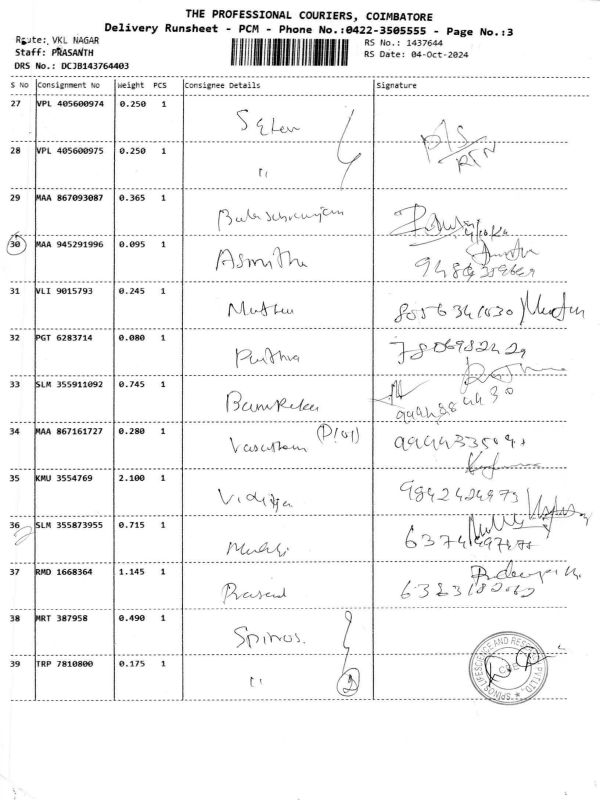 THE PROFESSIONAL COURIERS, COIMBATORE
Delivery Runsheet - PCM - Phone No.:0422-3505555 - Page No.:3
Route: VKL NAGAR
RS No.: 1437644
Staff: PRASANTH
RS Date: 04-Oct-2024
DRS No.: DCJB143764403
S No Consignment No Weight PCS Consignee Details Signature
27 VPL 405600974 0.250 1
28 VPL 405600975 0.250 1 "
29 MAA 867093087 0.365 1
30 MAA 945291996 0.095 1 Asmitha
31 VLI 9015793 0.245 1 Muthu
32 PGT 6283714 0.080 1
33 SLM 355911092 0.745 1
34 MAA 867161727 0.280 1 Vasantham
35 KMU 3554769 2.100 1 Vidhya 9842424973
36 SLM 355873955 0.715 1
37 RMD 1668364 1.145 1 Prasad
38 MRT 387958 0.490 1 Spinos.
39 TRP 7810800 0.175 1 " 2